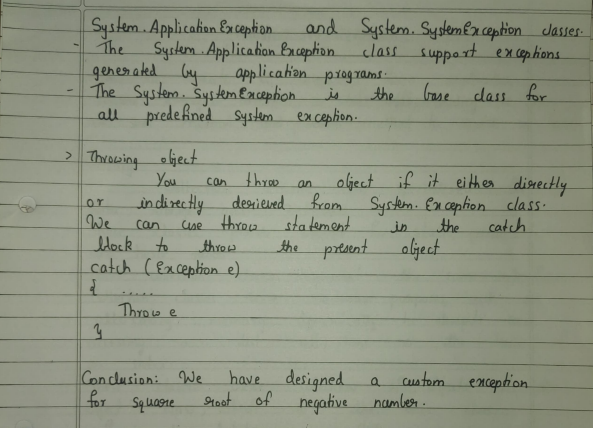 System.Application Exception and System.SystemException classes.
- The System.Application Exception class support exceptions
generated by application programs.
- The System.SystemException is the base class for
all predefined system exception.
> Throwing object
You can throw an object if it either directly
or indirectly derieved from System.Exception class.
We can use throw statement in the catch
block to throw the present object
catch (Exception e)
{ .....
Throw e
}
Conclusion: We have designed a custom exception
for square root of negative number.